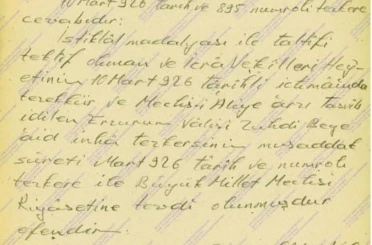 10 Mart 926 tarih ve 895 numrolı tezkere
cevabıdır:
İstiklâl madalyası ile taltifi
teklif olunan ve İcra Vekilleri Hey'
etinin 10 Mart 926 târihli ictimâında
tezekkür ve Meclis-i Âliye arzı tasvib
idilen Erzurum Vâlisi Zühdi Beye
âid inhâ tezkeresinin musaddak
sûreti Mart 926 târih ve numrolı
tezkere ile Büyük Millet Meclisi
Riyâsetine tevdi olunmuşdur
efendim.